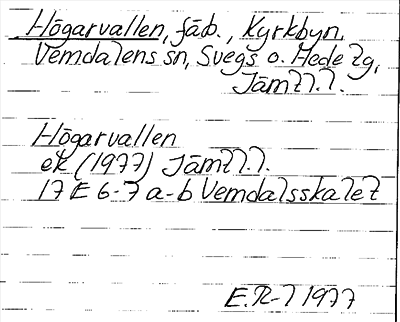 Högarvallen, fäb., Kyrkbyn,
Vemdalens sn, Svegs o. Hede tg,
Jämtl.l.
Högarvallen
ek (1977) Jämtl.l.
17 E 6-7 a-b Vemdalsskalet
E.R-l 1977